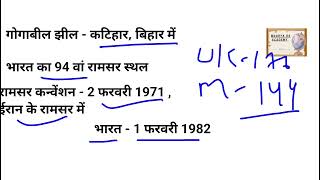 गोगाबील झील - कटिहार, बिहार में
भारत का 94 वां रामसर स्थल
रामसर कन्वेंशन - 2 फरवरी 1971 ,
ईरान के रामसर में
भारत - 1 फरवरी 1982
U/C - 176
M - 144